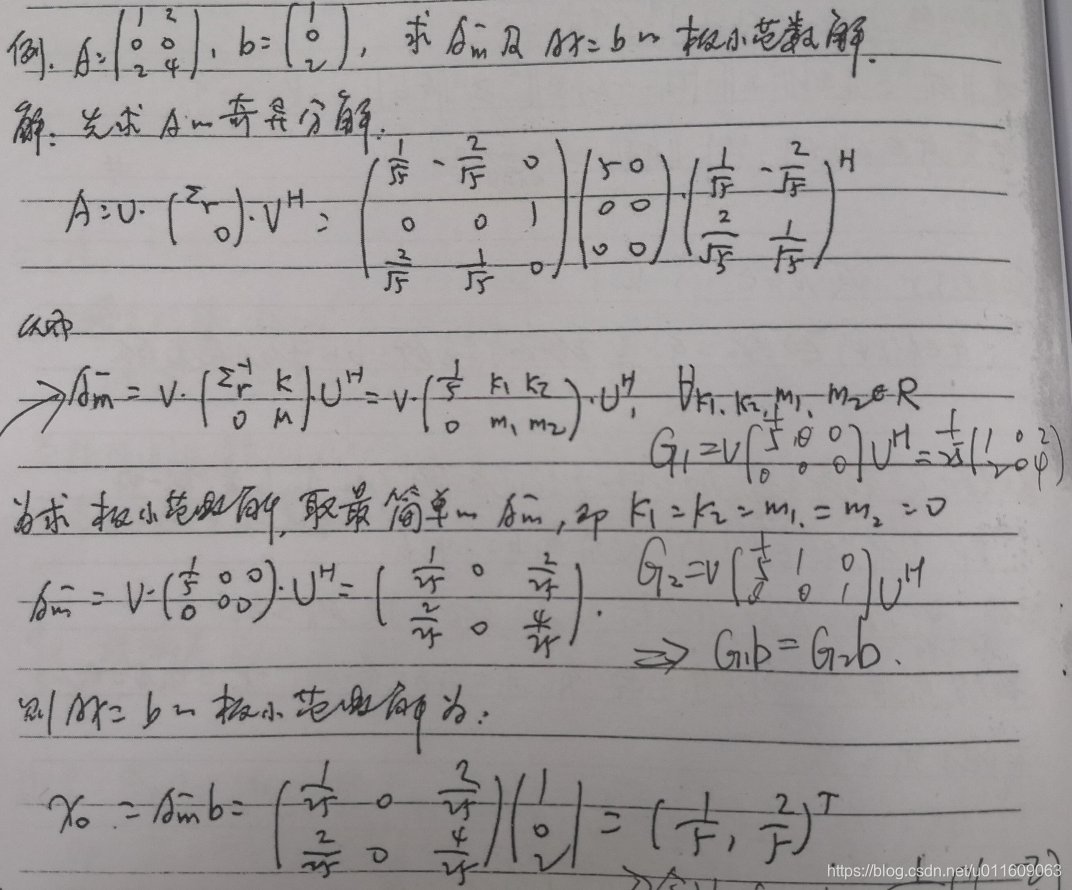 例. A=(1 2; 0 0; 2 4), b=(1; 0; 2), 求 Am⁻ 及 Ax=b~极小范数解.
解. 先求 A~奇异分解.
A=U·(Σr 0)·Vᴴ = (1/√5 -2/√5 0; 0 0 1; 2/√5 1/√5 0)(5 0; 0 0; 0 0)·(1/√5 -2/√5; 2/√5 1/√5)ᴴ
→ Am⁻ = V·(Σr⁻¹ K; 0 M)·Uᴴ = V·(1/5 K₁ K₂; 0 m₁ m₂)·Uᴴ, ∀K₁, K₂, m₁, m₂∈R
G₁=V(1/5 0 0; 0 0 0)Uᴴ=1/25(1 0 2; 2 0 4)
为求极小范数解, 取最简单~Am⁻, 即 K₁=K₂=m₁=m₂=0
Am⁻ = V·(1/5 0 0; 0 0 0)·Uᴴ = (1/25 0 2/25; 2/25 0 4/25).
G₂=V(1/5 1 0; 0 0 1)Uᴴ
⇒ G₁b=G₂b.
则 Ax=b~极小范数解为:
x₀ = Am⁻b = (1/25 0 2/25; 2/25 0 4/25)(1; 0; 2) = (1/5, 2/5)ᵀ
https://blog.csdn.net/u011609063